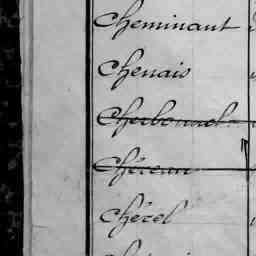 Cheminant
Chenais
Cherbonnel
Chéreau
Chérel